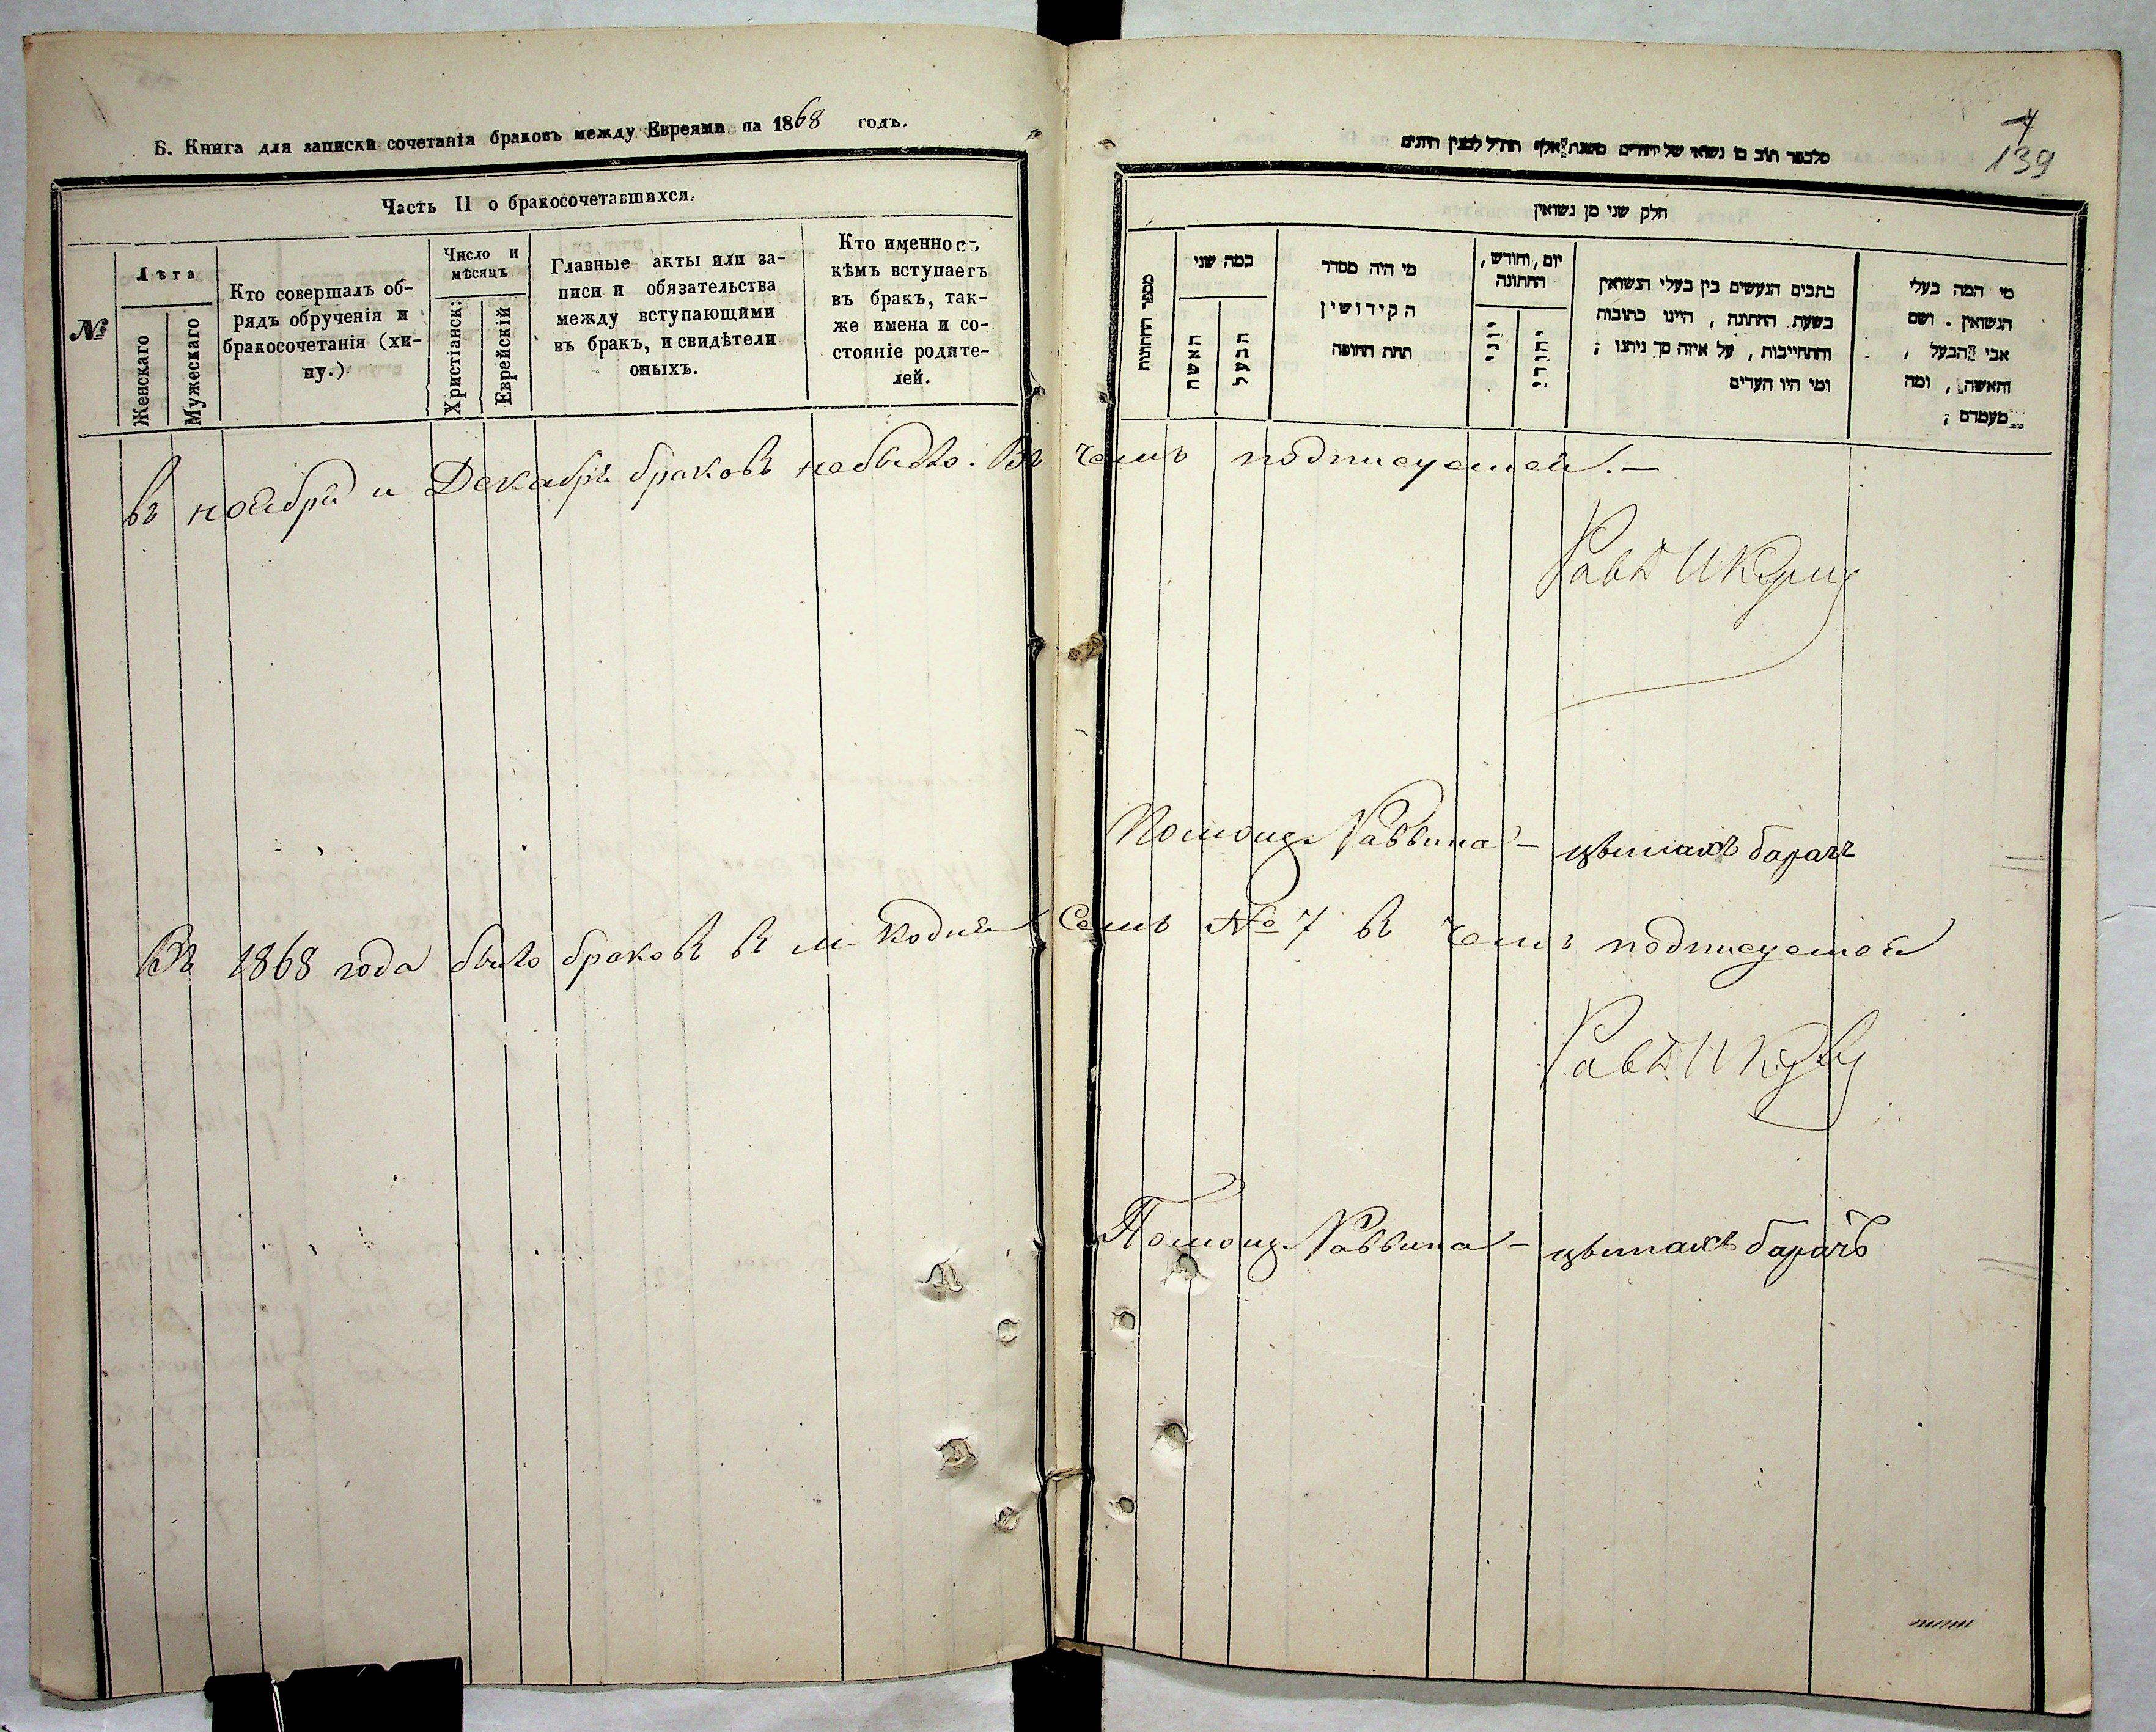 Б. Книга для записки сочетанія браковъ между Евреями на 1868 годъ.
Часть II о бракосочетавшихся.
№
Лѣта
Женскаго
Мужескаго
Кто совершалъ об-
рядъ обрученія и
бракосочетанія (хи-
пу.)
Число и
мѣсяцъ
Христіанск:
Еврейскій
Главные акты или за-
писи и обязательства
между вступающими
въ бракъ, и свидѣтели
оныхъ.
Кто именно съ
кѣмъ вступаетъ
въ бракъ, так-
же имена и со-
стояніе родите-
лей.
7
139
חלק שני מן נשואין
מספר החתונות
כמה שני
האשה
הבעל
מי היה מסדר
הקידושין
תחת החופה
יום, וחודש,
החתונה
יוני
יהודי
כתבים הנעשים בין בעלי הנשואין
בשעת החתונה, היינו כתובות
והתחייבות, על איזה סך ניתנו;
ומי היו העדים
מי המה בעלי
הנשואין. ושם
אבי הבעל,
והאשה, ומה
מעמדם;
Въ ноября и Декабря браковъ небыло. Въ чемъ подписуемся.—
Равв
Помощ. Раввина —
Въ 1868 года было браковъ въ м. Кодня Семь № 7 въ чемъ подписуемся
Равв
Помощ. Раввина —